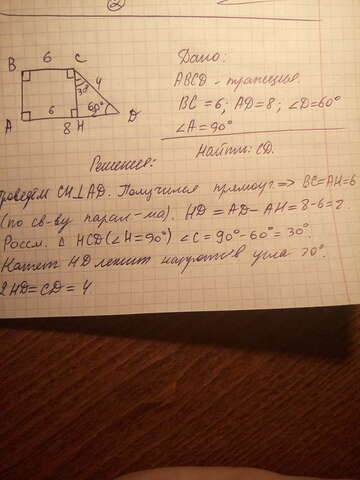 2
6
B C
30° 4
6 60°
A 8 H D
Дано:
ABCD - трапеция.
BC = 6; AD = 8; ∠D = 60°
∠A = 90°
Найти: CD.
Решение:
роведём CH⊥AD. Получился прямоуг. => BC = AH = 6
(по св-ву парал-ма). HD = AD - AH = 8 - 6 = 2.
Россм. △ HCD (∠H = 90°) ∠C = 90° - 60° = 30°.
Катет HD лежит напротив угла 30°.
2HD = CD = 4